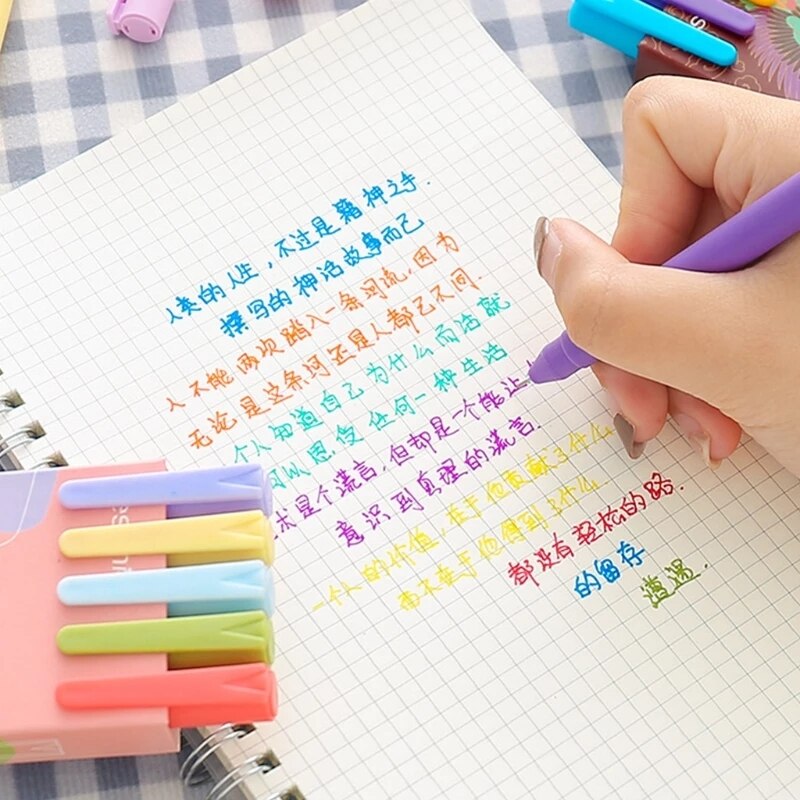 人类的人生，不过是籍神之手.
撰写的神话故事而己
人不能两次踏入一条河流，因为
无论是这条河还是人都已不同.
个人知道自己为什么而活就
可以忍受任何一种生活
术是个谎言，但却是一个能让
意识到真理的谎言.
一个人的价值，在于他贡献了什么
而不在于他得到了什么
都没有轻松的路.
的留存